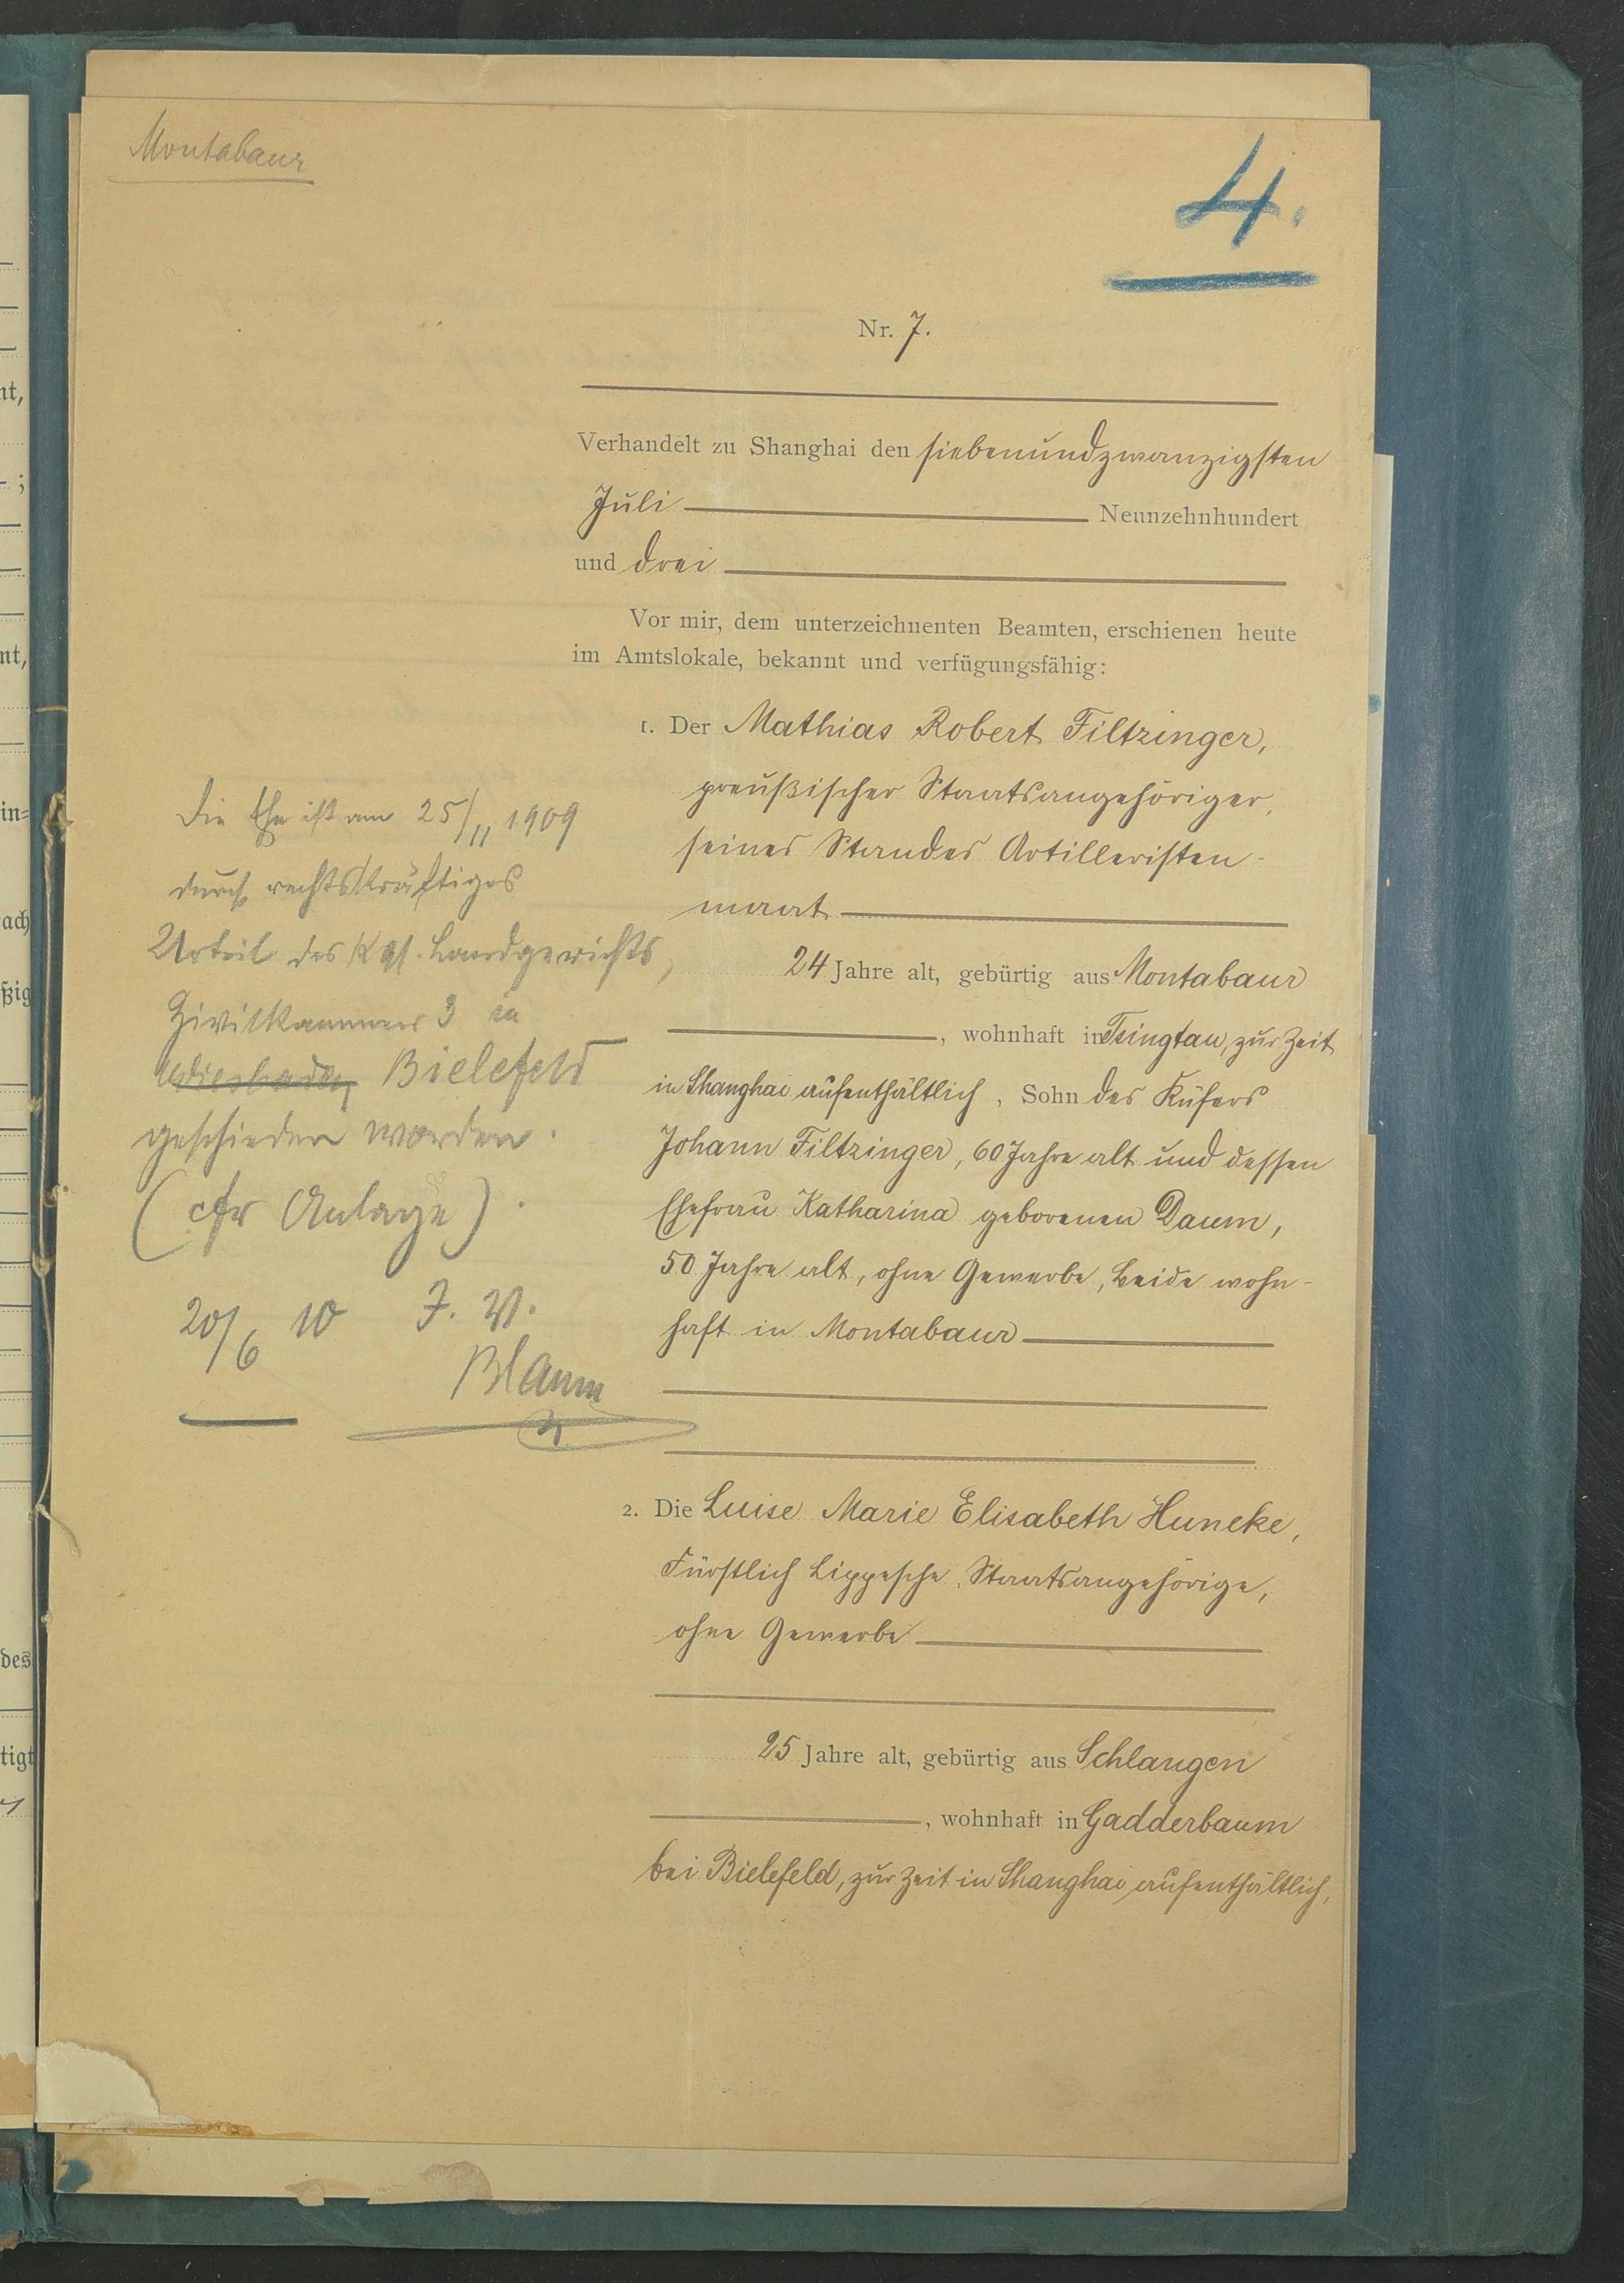 Montabaur
4.
Nr. 7.
Verhandelt zu Shanghai den siebenundzwanzigsten
Juli Neunzehnhundert
und drei
Vor mir, dem unterzeichnenten Beamten, erschienen heute
im Amtslokale, bekannt und verfügungsfähig:
1. Der Mathias Robert Filtzinger,
preußischer Staatsangehöriger,
seines Standes Artilleristen-
maat
24 Jahre alt, gebürtig aus Montabaur
, wohnhaft in Tsingtau, zur Zeit
in Shanghai aufenthältlich, Sohn des Küfers
Johann Filtzinger, 60 Jahre alt und dessen
Ehefrau Katharina geborenen Daum,
50 Jahre alt, ohne Gewerbe, beide wohn-
haft in Montabaur
2. Die Luise Marie Elisabeth Huneke,
Fürstlich Lippesche Staatsangehörige,
ohne Gewerbe
25 Jahre alt, gebürtig aus Schlangen
, wohnhaft in Gadderbaum
bei Bielefeld, zur Zeit in Shanghai aufenthältlich,
Die Ehe ist am 25/11 1909
durch rechtskräftiges
Urteil des Kgl. Landgerichts,
Zivilkammer 3 in
Wiesbaden Bielefeld
geschieden worden.
(cfr Anlage).
20/6 10 J. V.
Blaum
nt,
;
nt,
in=
ach
ßig
des
tigt